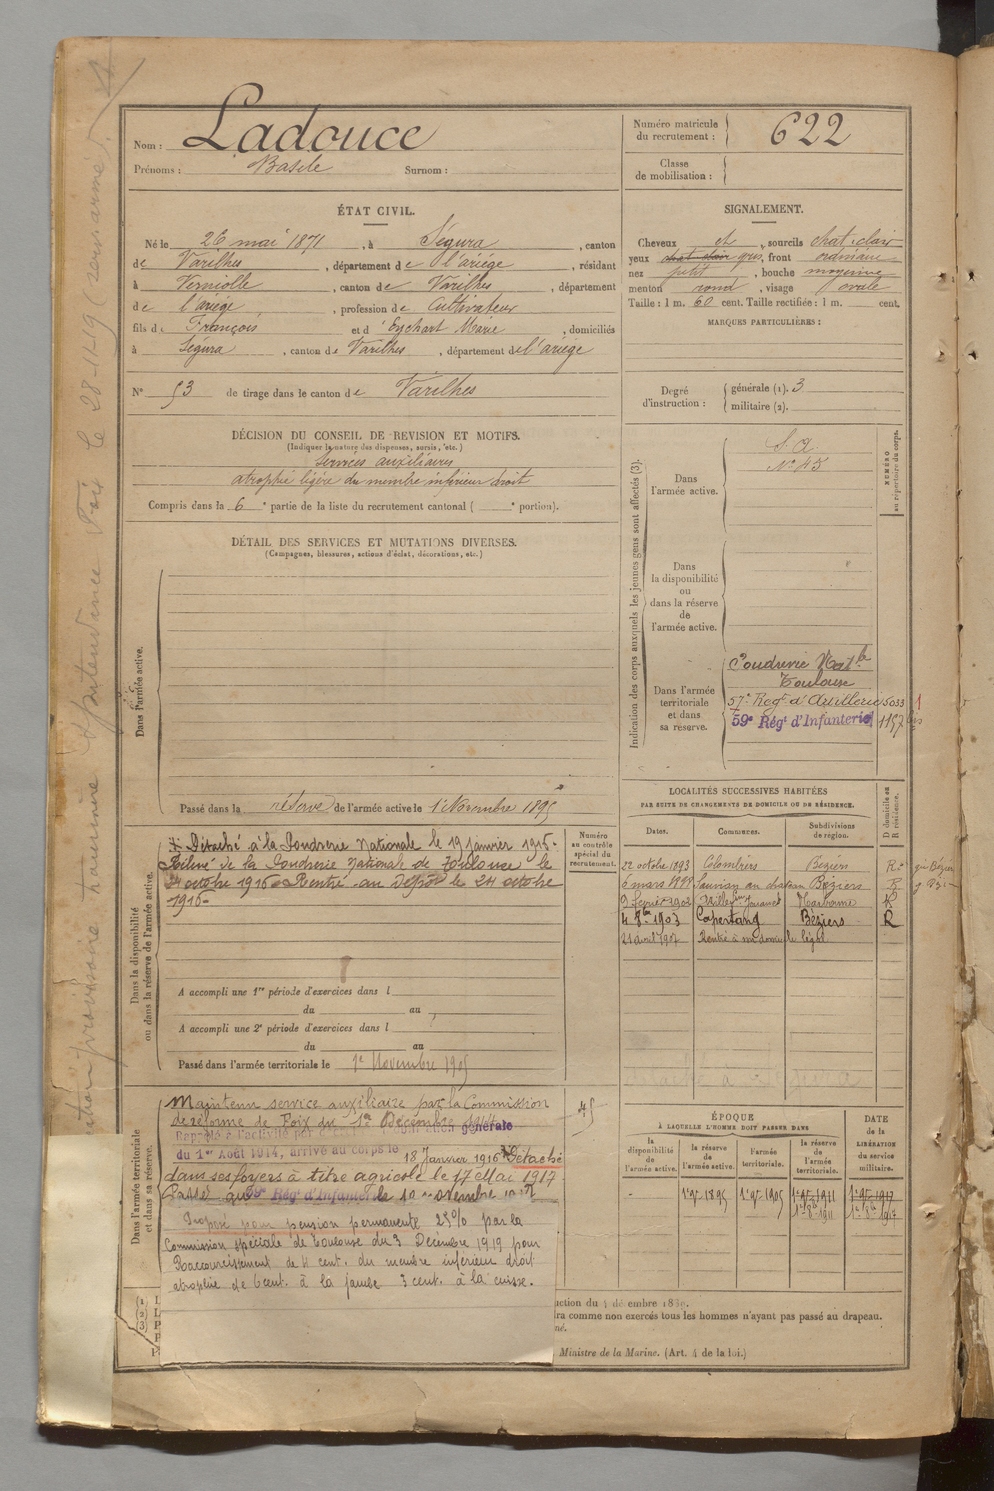 Nom : Ladouce
Prénoms : Basile Surnom :
Numéro matricule
du recrutement : 622
Classe
de mobilisation :
ÉTAT CIVIL.
Né le 26 mai 1871, à Ségura, canton
de Varilhes, département de l'ariége, résidant
à Verniolle, canton de Varilhes, département
de l'ariége, profession de Cultivateur
fils de François et d'Eychart Marie, domiciliés
à Ségura, canton de Varilhes, département de l'ariége
N° 53 de tirage dans le canton de Varilhes
SIGNALEMENT.
Cheveux et, sourcils chat. clair
yeux chat clair gris, front ordinaire
nez petit, bouche moyenne
menton rond, visage ovale
Taille : 1 m. 60 cent. Taille rectifiée : 1 m. cent.
MARQUES PARTICULIÈRES :
Degré
d'instruction :
générale (1). 3
militaire (2).
DÉCISION DU CONSEIL DE REVISION ET MOTIFS.
(Indiquer la nature des dispenses, sursis, etc.)
Services auxiliaires
atrophie légère du membre inférieur droit
Compris dans la 6e partie de la liste du recrutement cantonal ( e portion).
DÉTAIL DES SERVICES ET MUTATIONS DIVERSES.
(Campagnes, blessures, actions d'éclat, décorations, etc.)
Dans l'armée active.
Passé dans la réserve de l'armée active le 1er Novembre 1895
Indication des corps auxquels les jeunes gens sont affectés (3).
NUMÉRO
au répertoire du corps.
Dans
l'armée active.
S. A
N° 45
Dans
la disponibilité
ou
dans la réserve
de
l'armée active.
Dans l'armée
territoriale
et dans
sa réserve.
Poudrerie Natle
Toulouse
57e Régt d'Artillerie 15033
59e Régt d'Infanterie 1157 bis
LOCALITÉS SUCCESSIVES HABITÉES
PAR SUITE DE CHANGEMENTS DE DOMICILE OU DE RÉSIDENCE.
Dates. Communes. Subdivisions
de région.
D domicile ou
R résidence.
22 octobre 1893 Colombiers Béziers R.
6 mars 1899 Sauvian au chateau Béziers R
9 Février 1902 Narbonne R
4 8bre 1903 Capestang Béziers R
21 avril 1907 Rentré à son domicile légal
Dans la disponibilité
ou dans la réserve de l'armée active.
Numéro
au contrôle
spécial du
recrutement.
Détaché à la Poudrerie Nationale le 19 janvier 1916.
Relevé de la Poudrerie Nationale de Toulouse le
24 octobre 1916 Rentré au Dépôt le 24 octobre
1916
A accompli une 1re période d'exercices dans l
du au
A accompli une 2e période d'exercices dans l
du au
Passé dans l'armée territoriale le 1er Novembre 1905
Dans l'armée territoriale
et dans sa réserve.
Maintenu service auxiliaire par la Commission
de réforme de Foix du 1er Décembre 1914
45
du 1er Août 1914, arrivé au corps le 18 Janvier 1916 Détaché
dans ses foyers à titre agricole le 17 Mai 1917
Passé au 59e Régt d'Infanterie le 10 novembre 1917
Proposé pour pension permanente 25% par la
Commission spéciale de Toulouse du 3 Décembre 1919 pour
Raccourcissement de 4 cent. du membre inférieur droit
atrophie de 6 cent. à la jambe 3 cent. à la cuisse.
ÉPOQUE
À LAQUELLE L'HOMME DOIT PASSER DANS
DATE
de la
LIBÉRATION
du service
militaire.
la
disponibilité
de
l'armée active.
la réserve
de
l'armée active.
l'armée
territoriale.
la réserve
de
l'armée
territoriale.
1er 9bre 1895 1er 9bre 1905 1er 9bre 1911 1er 9bre 1917
1er 8bre 1911 1er 8bre 1917
ra comme non exercés tous les hommes n'ayant pas passé au drapeau.
Ministre de la Marine. (Art. 4 de la loi.)